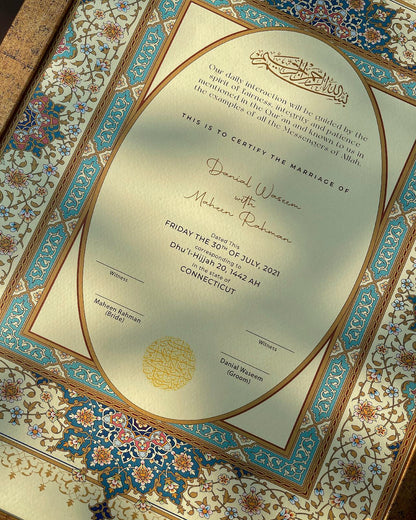 بسم الله الرحمن الرحيم
Our daily interaction will be guided by the
spirit of fairness, integrity and patience
mentioned in the Qur'an and known to us in
the examples of all the Messengers of Allah.
THIS IS TO CERTIFY THE MARRIAGE OF
Danial Waseem
with
Maheen Rahman
Dated This
FRIDAY THE 30TH OF JULY, 2021
corresponding to
Dhu'l-Hijjah 20, 1442 AH
in the state of
CONNECTICUT
Witness
Maheen Rahman
(Bride)
Witness
Danial Waseem
(Groom)